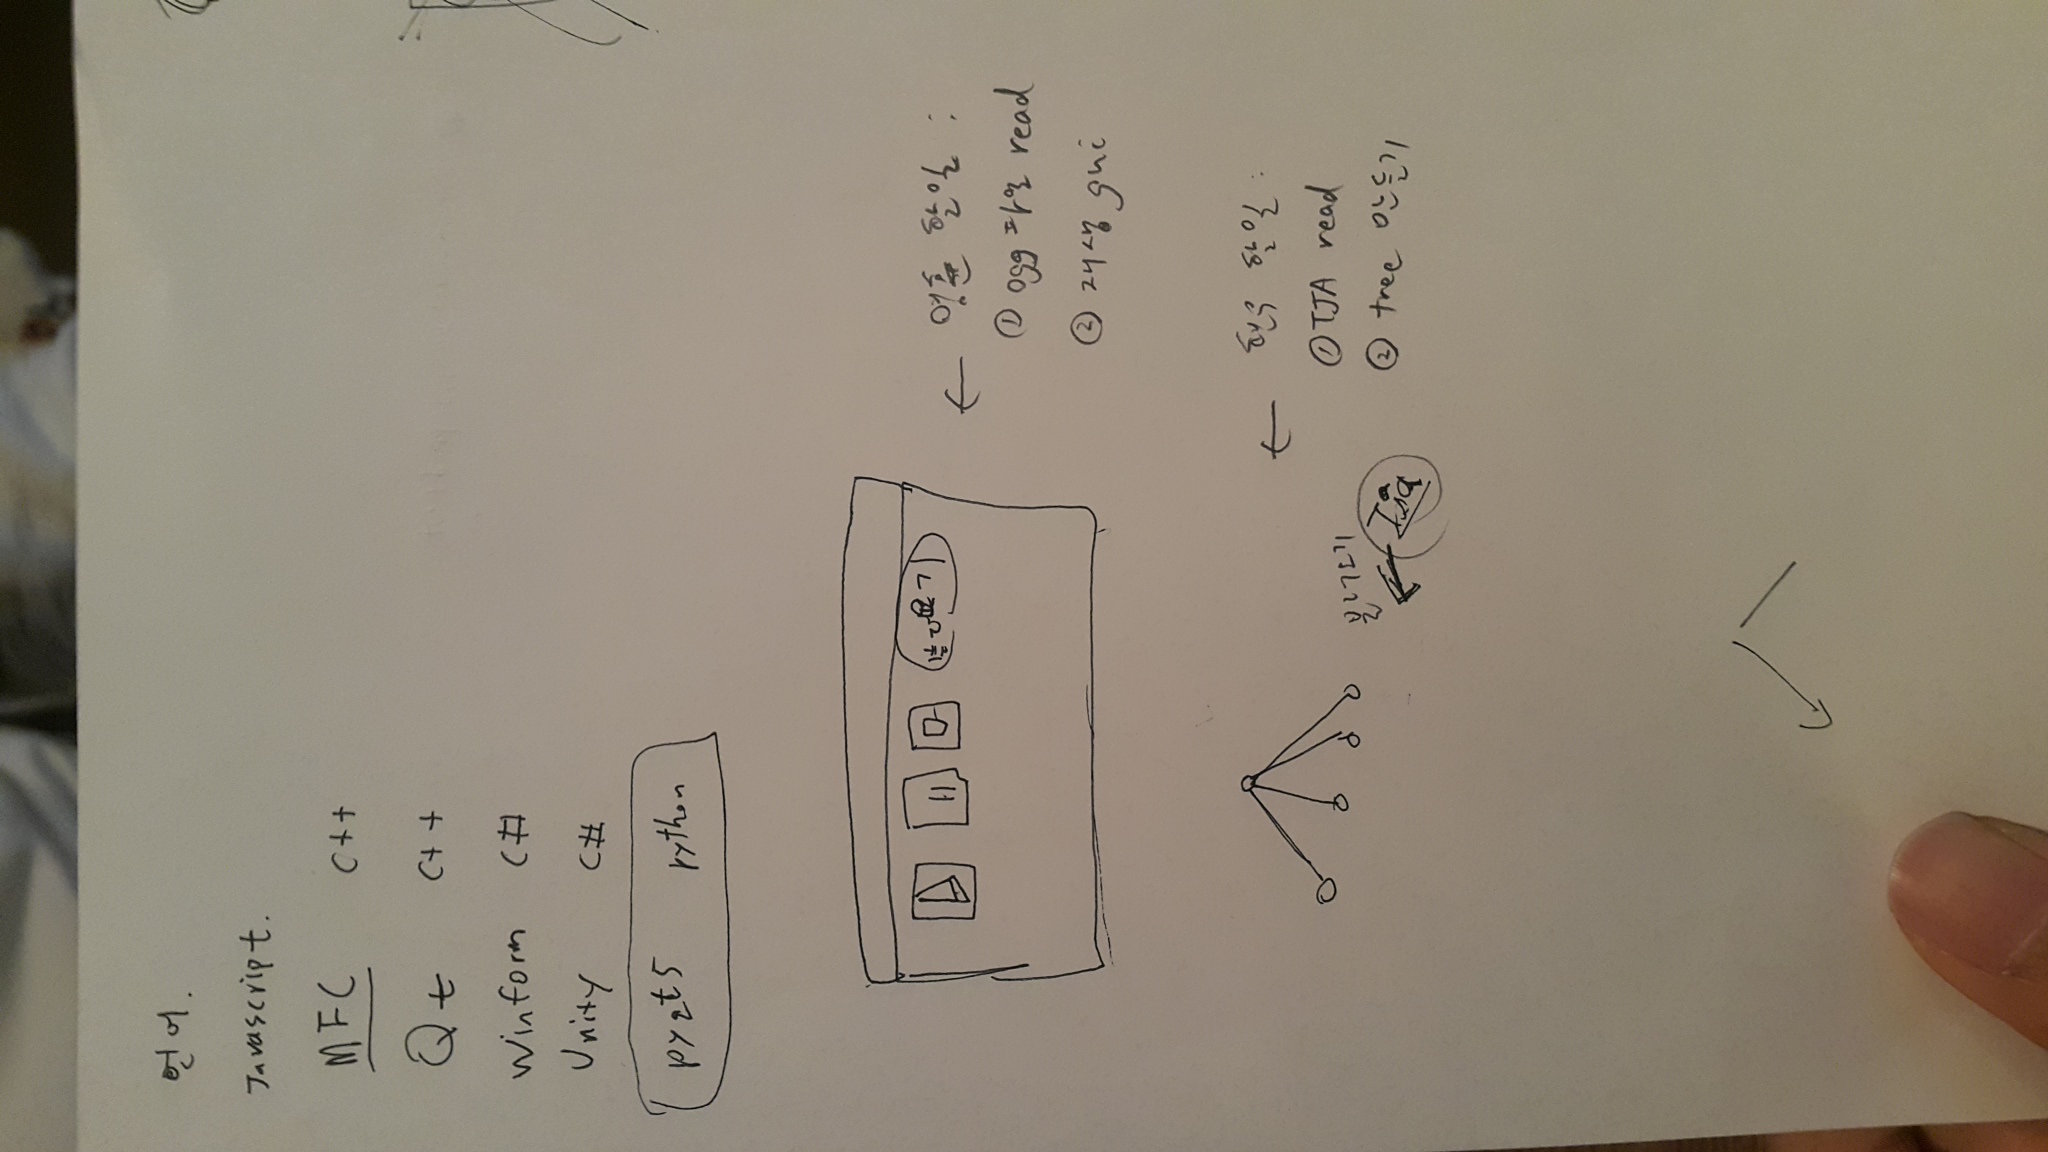 언어.
Javascript.
MFC C++
Qt C++
Winform C#
Unity C#
pyqt5 python
불러오기
영훈 할일 :
① ogg 파일 read
② 재생 gui
현우 할일 :
① TJA read
② tree 만들기
불러오기
Tja